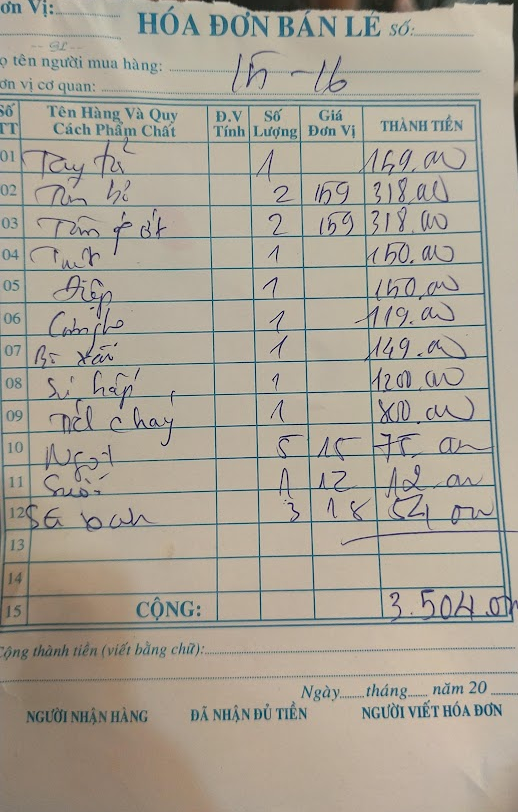 ơn Vị:
HÓA ĐƠN BÁN LẺ SỐ:
ọ tên người mua hàng:
15 - 16
ơn vị cơ quan:
Số TT Tên Hàng Và Quy Cách Phẩm Chất Đ.V Tính Số Lượng Giá Đơn Vị THÀNH TIỀN
01 1 159.00
02 2 159 318.00
03 2 159 318.00
04 1 150.00
05 Điệp 1 150.00
06 1 119.00
07 1 149.00
08 hấp 1 1200.00
09 cháy 1 800.00
10 Ngọt 5 15 75.00
11 Suối 1 12 12.00
12 3 18 54.00
13
14
15 CỘNG: 3.504.00
Cộng thành tiền (viết bằng chữ):
Ngày tháng năm 20
NGƯỜI NHẬN HÀNG ĐÃ NHẬN ĐỦ TIỀN NGƯỜI VIẾT HÓA ĐƠN